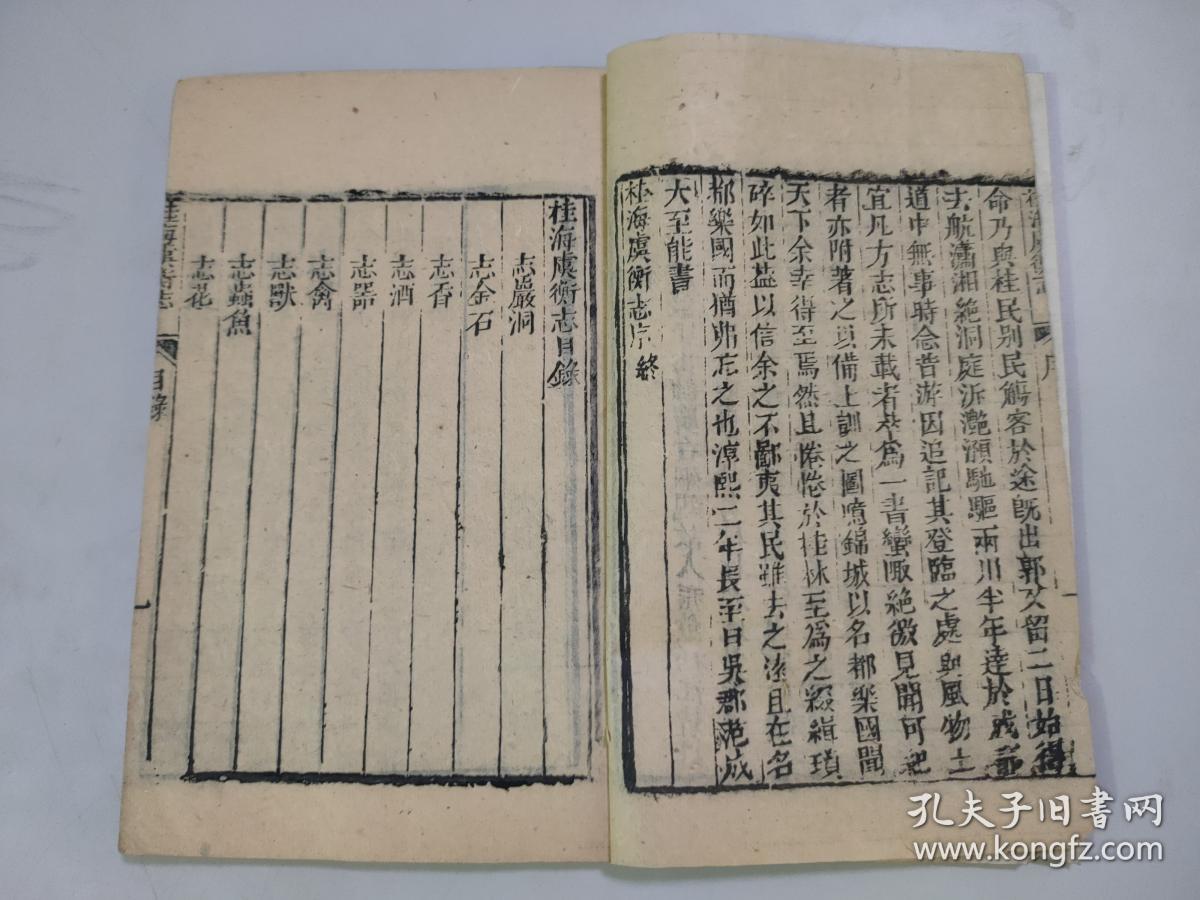 命乃與桂民别民觴客於途既出郭又留二日始得
去航瀟湘絶洞庭泝灔澦馳驅兩川半年達於成都
道中無事時念昔游因追記其登臨之處與風物土
宜凡方志所未載者萃爲一書蠻陬絶徼見聞可紀
者亦附著之以備土訓之圖噫錦城以名都樂國聞
天下余幸得至焉然且惓惓於桂林至爲之綴緝瑣
碎如此葢以信余之不鄙夷其民雖去之逺且在名
都樂國而猶弗忘之也淳熙二年長至日吳郡范成
大至能書
桂海虞衡志序終
序
一
桂海虞衡志目錄
志巖洞
志金石
志香
志酒
志器
志禽
志獸
志蟲魚
志花
桂海虞衡志
目錄
一
孔夫子旧书网
www.kongfz.com